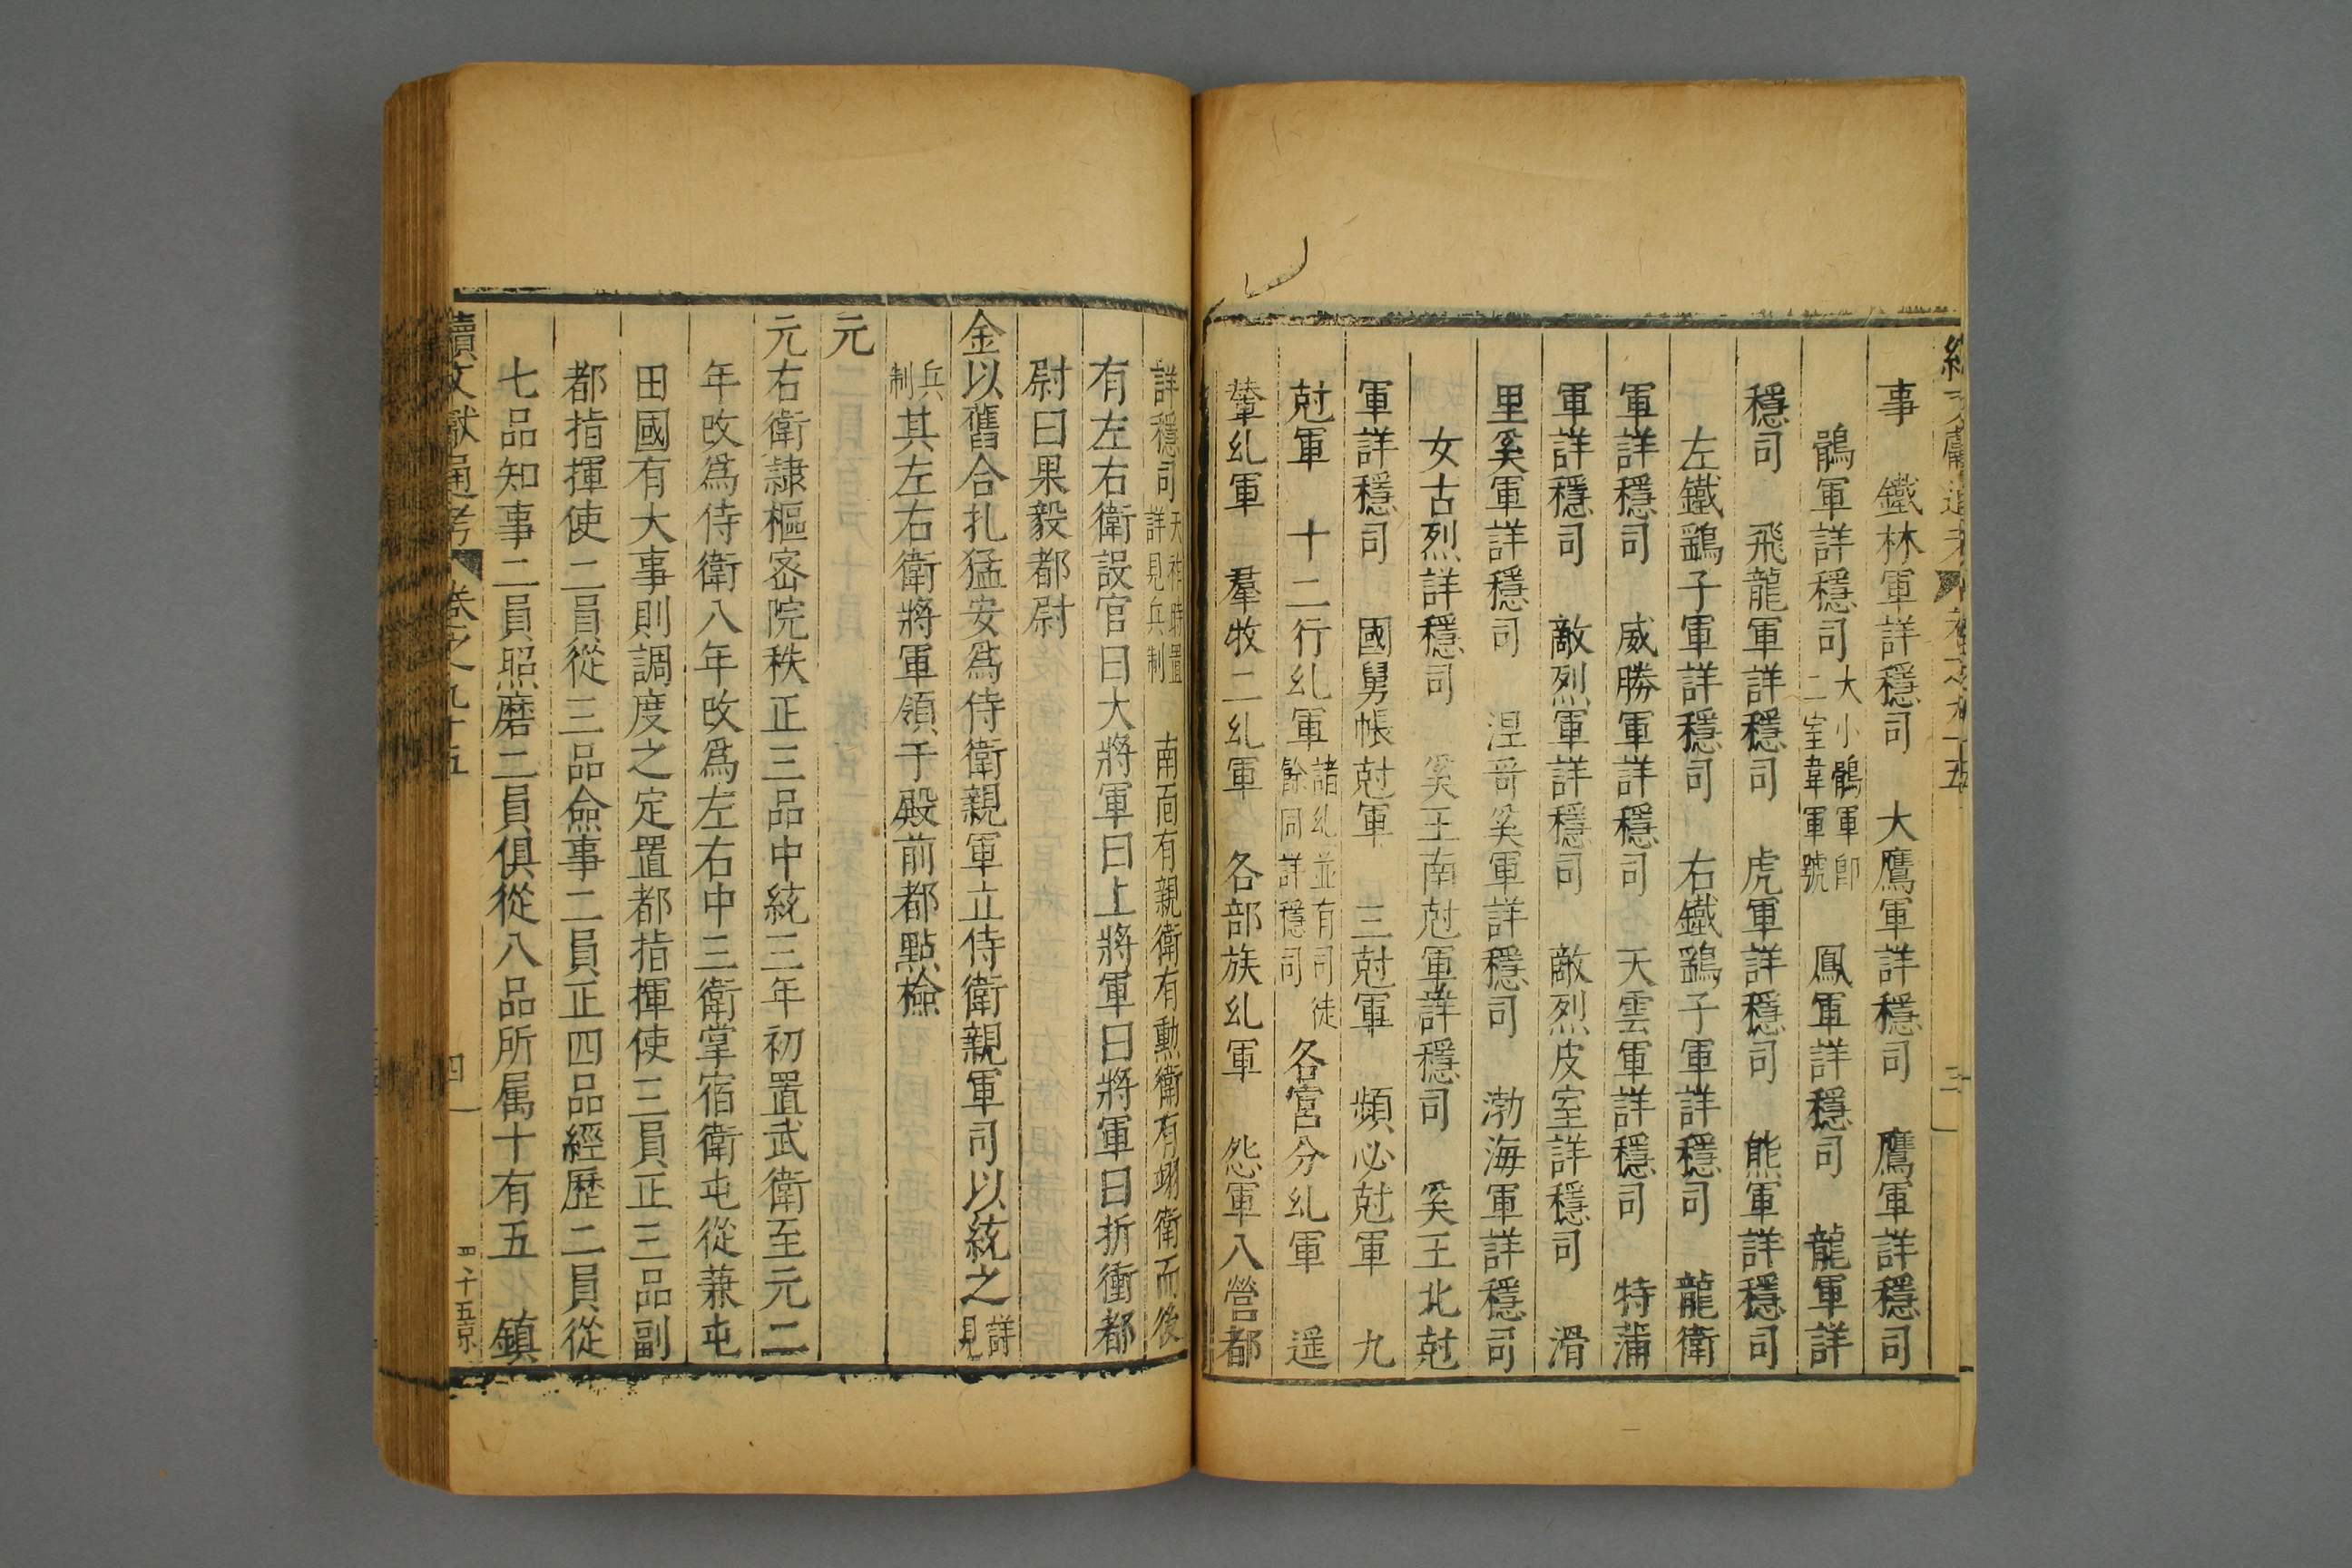 事　鐵林軍詳穩司　大鷹軍詳穩司　鷹軍詳穩司
鶻軍詳穩司大小鶻軍即二室韋軍號　鳳軍詳穩司　龍軍詳
穩司　飛龍軍詳穩司　虎軍詳穩司　熊軍詳穩司
左鐵鷂子軍詳穩司　右鐵鷂子軍詳穩司　龍衛
軍詳穩司　威勝軍詳穩司　天雲軍詳穩司　特蒲
軍詳穩司　敵烈軍詳穩司　敵烈皮室詳穩司　滑
里奚軍詳穩司　涅哥奚軍詳穩司　渤海軍詳穩司
女古烈詳穩司　奚王南尅軍詳穩司　奚王北尅
軍詳穩司　國舅帳尅軍　三尅軍　頻必尅軍　九
尅軍　十二行糺軍諸糺並有司徒餘同詳穩司　各宮分糺軍　遥
輦糺軍　羣牧二糺軍　各部族糺軍　怨軍八營都
詳穩司天祚時置詳見兵制　南面有親衛有勳衛有翊衛而後
有左右衛設官曰大將軍曰上將軍曰將軍曰折衝都
尉曰果毅都尉
金以舊合扎猛安爲侍衛親軍立侍衛親軍司以統之詳見
兵制其左右衛將軍領于殿前都點檢
元
元右衛隷樞密院秩正三品中統三年初置武衛至元二
年改爲侍衛八年改爲左右中三衛掌宿衛屯從兼屯
田國有大事則調度之定置都指揮使三員正三品副
都指揮使二員從三品僉事二員正四品經歷二員從
七品知事二員照磨二員俱從八品所属十有五　鎮
續文獻通考　卷之九十五　四